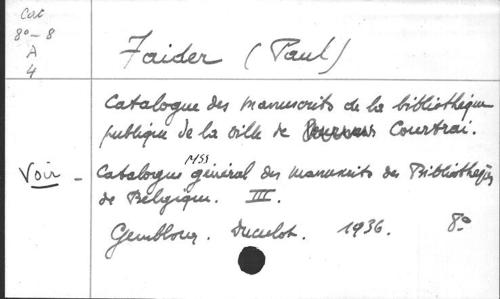 Cat
8°-8
A
4
Faider (Paul)
Catalogue des manuscrits de la bibliothèque
publique de la ville de Courtrai.
Voir - Catalogue MSS général des manuscrits des Bibliothèques
de Belgique. III.
Gembloux. Duculot. 1936. 8°